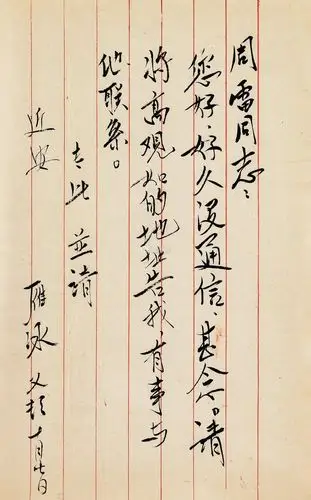 周雷同志：
您好，好久没通信，甚念。请
将高观如的地址告我，有事与
他联系。
专此并请
近安
雁冰 又拜 十月七日